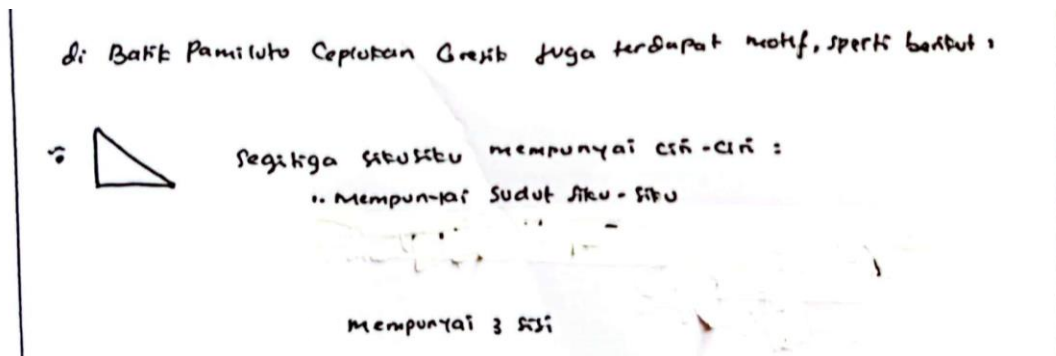 di Batik Pamiluto Ceplokan Gresik juga terdapat motif, sperti berikut :
Segitiga siku siku mempunyai ciri-ciri :
1. Mempunyai sudut siku-siku
mempunyai 3 sisi